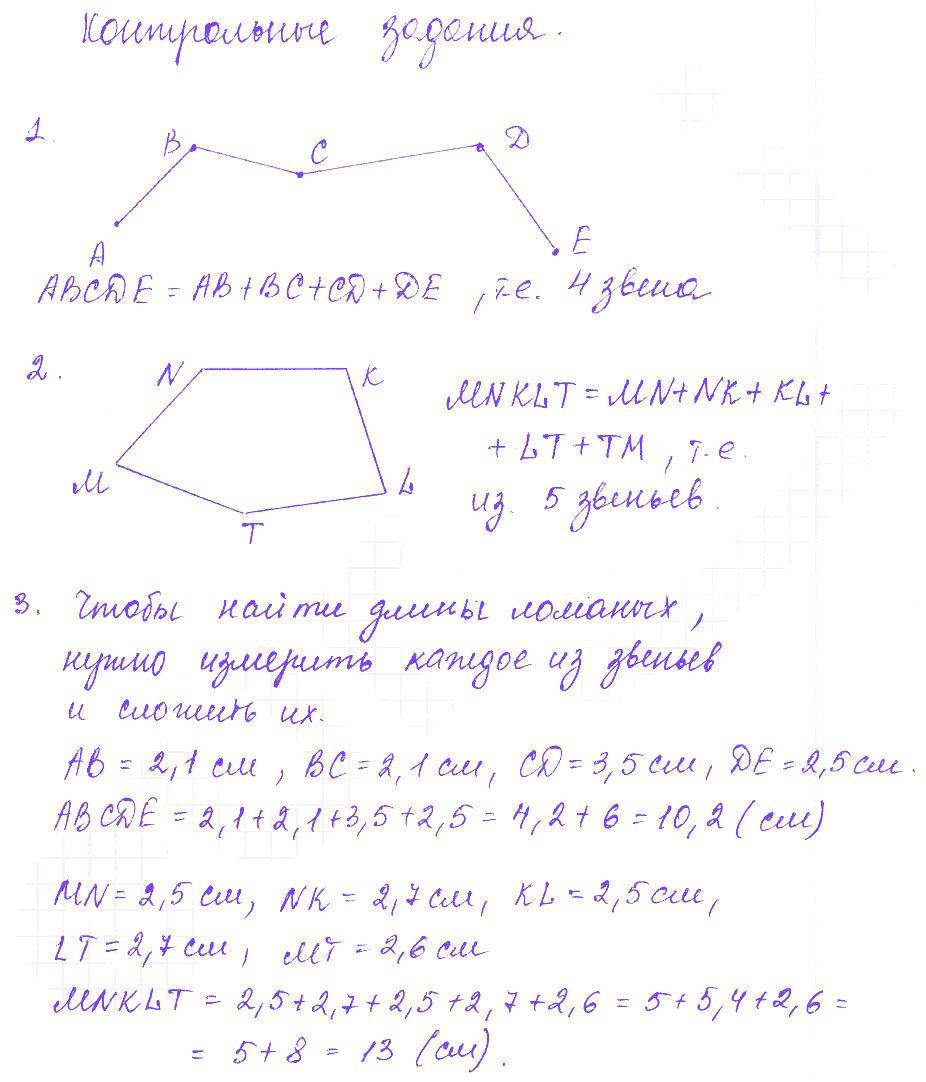 Контрольные задания.
1.
B
C
D
A
E
ABCDE = AB+BC+CD+DE , т.е. 4 звена
2.
N
K
M
L
T
MNKLT = MN+NK+KL+
+ LT+TM , т.е.
из 5 звеньев.
3. Чтобы найти длины ломаных,
нужно измерить каждое из звеньев
и сложить их.
AB = 2,1 см , BC = 2,1 см, CD = 3,5 см, DE = 2,5 см.
ABCDE = 2,1+2,1+3,5+2,5 = 4,2+6 = 10,2 (см)
MN = 2,5 см, NK = 2,7 см, KL = 2,5 см,
LT = 2,7 см, MT = 2,6 см
MNKLT = 2,5+2,7+2,5+2,7+2,6 = 5+5,4+2,6 =
= 5+8 = 13 (см).